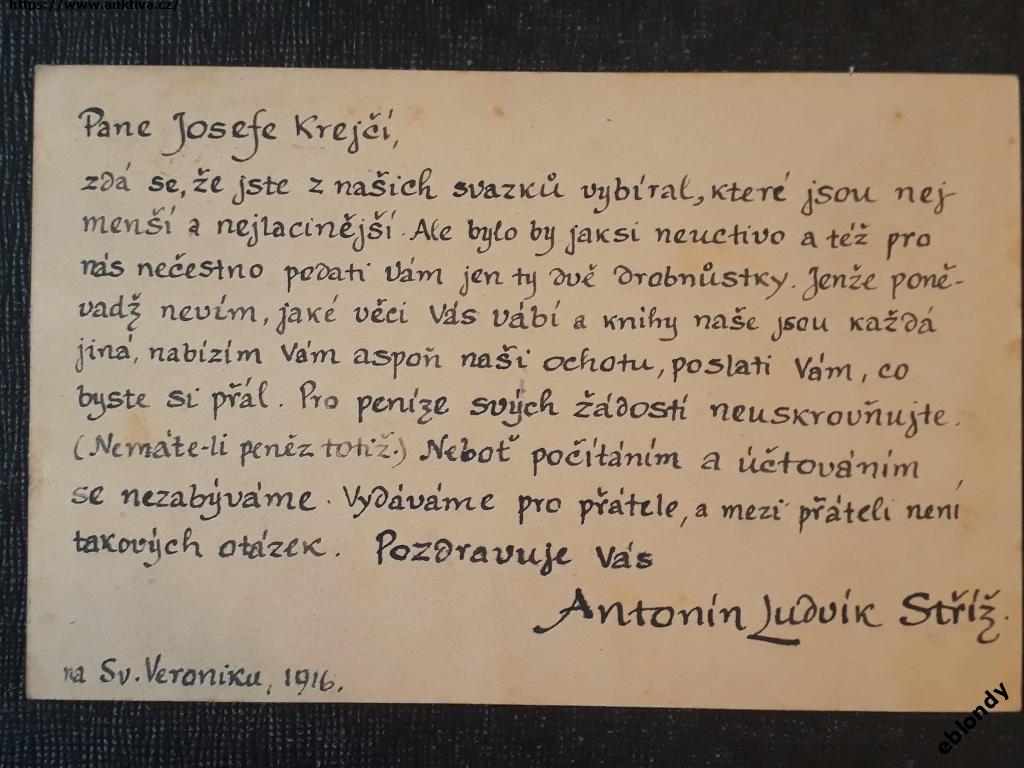 https://www.auktiva.cz/
Pane Josefe Krejčí,
zdá se, že jste z našich svazků vybíral, které jsou nej
menší a nejlacinější. Ale bylo by jaksi neuctivo a též pro
nás nečestno podati Vám jen ty dvě drobnůstky. Jenže poně-
vadž nevím, jaké věci Vás vábí a knihy naše jsou každá
jiná, nabízím Vám aspoň naši ochotu, poslati Vám, co
byste si přál. Pro peníze svých žádostí neuskrovňujte.
(Nemáte-li peněz totiž.) Neboť počítáním a účtováním,
se nezabýváme. Vydáváme pro přátele, a mezi přáteli není
takových otázek. Pozdravuje Vás
Antonín Ludvík Stříž.
na Sv. Veroniku, 1916.
eblondy